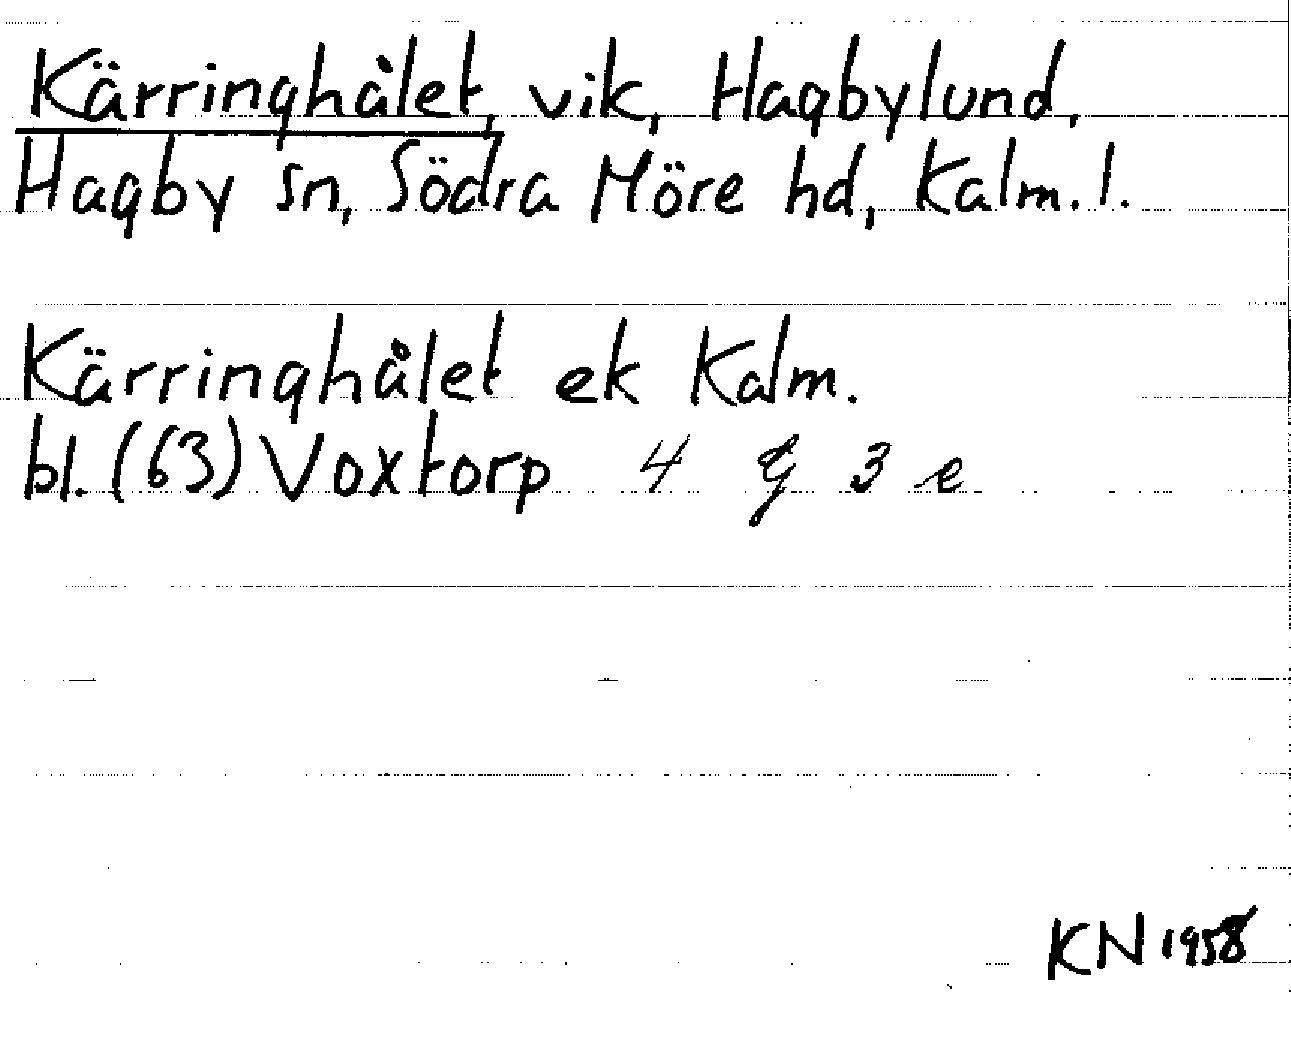 Kärringhålet, vik, Hagbylund,
Hagby sn, Södra Möre hd, Kalm. l.
Kärringhålet ek Kalm.
bl. (63) Voxtorp 4 G 3 e
KN 1958